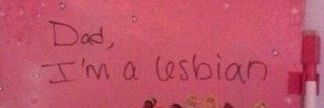 Dad,
I'm a lesbian